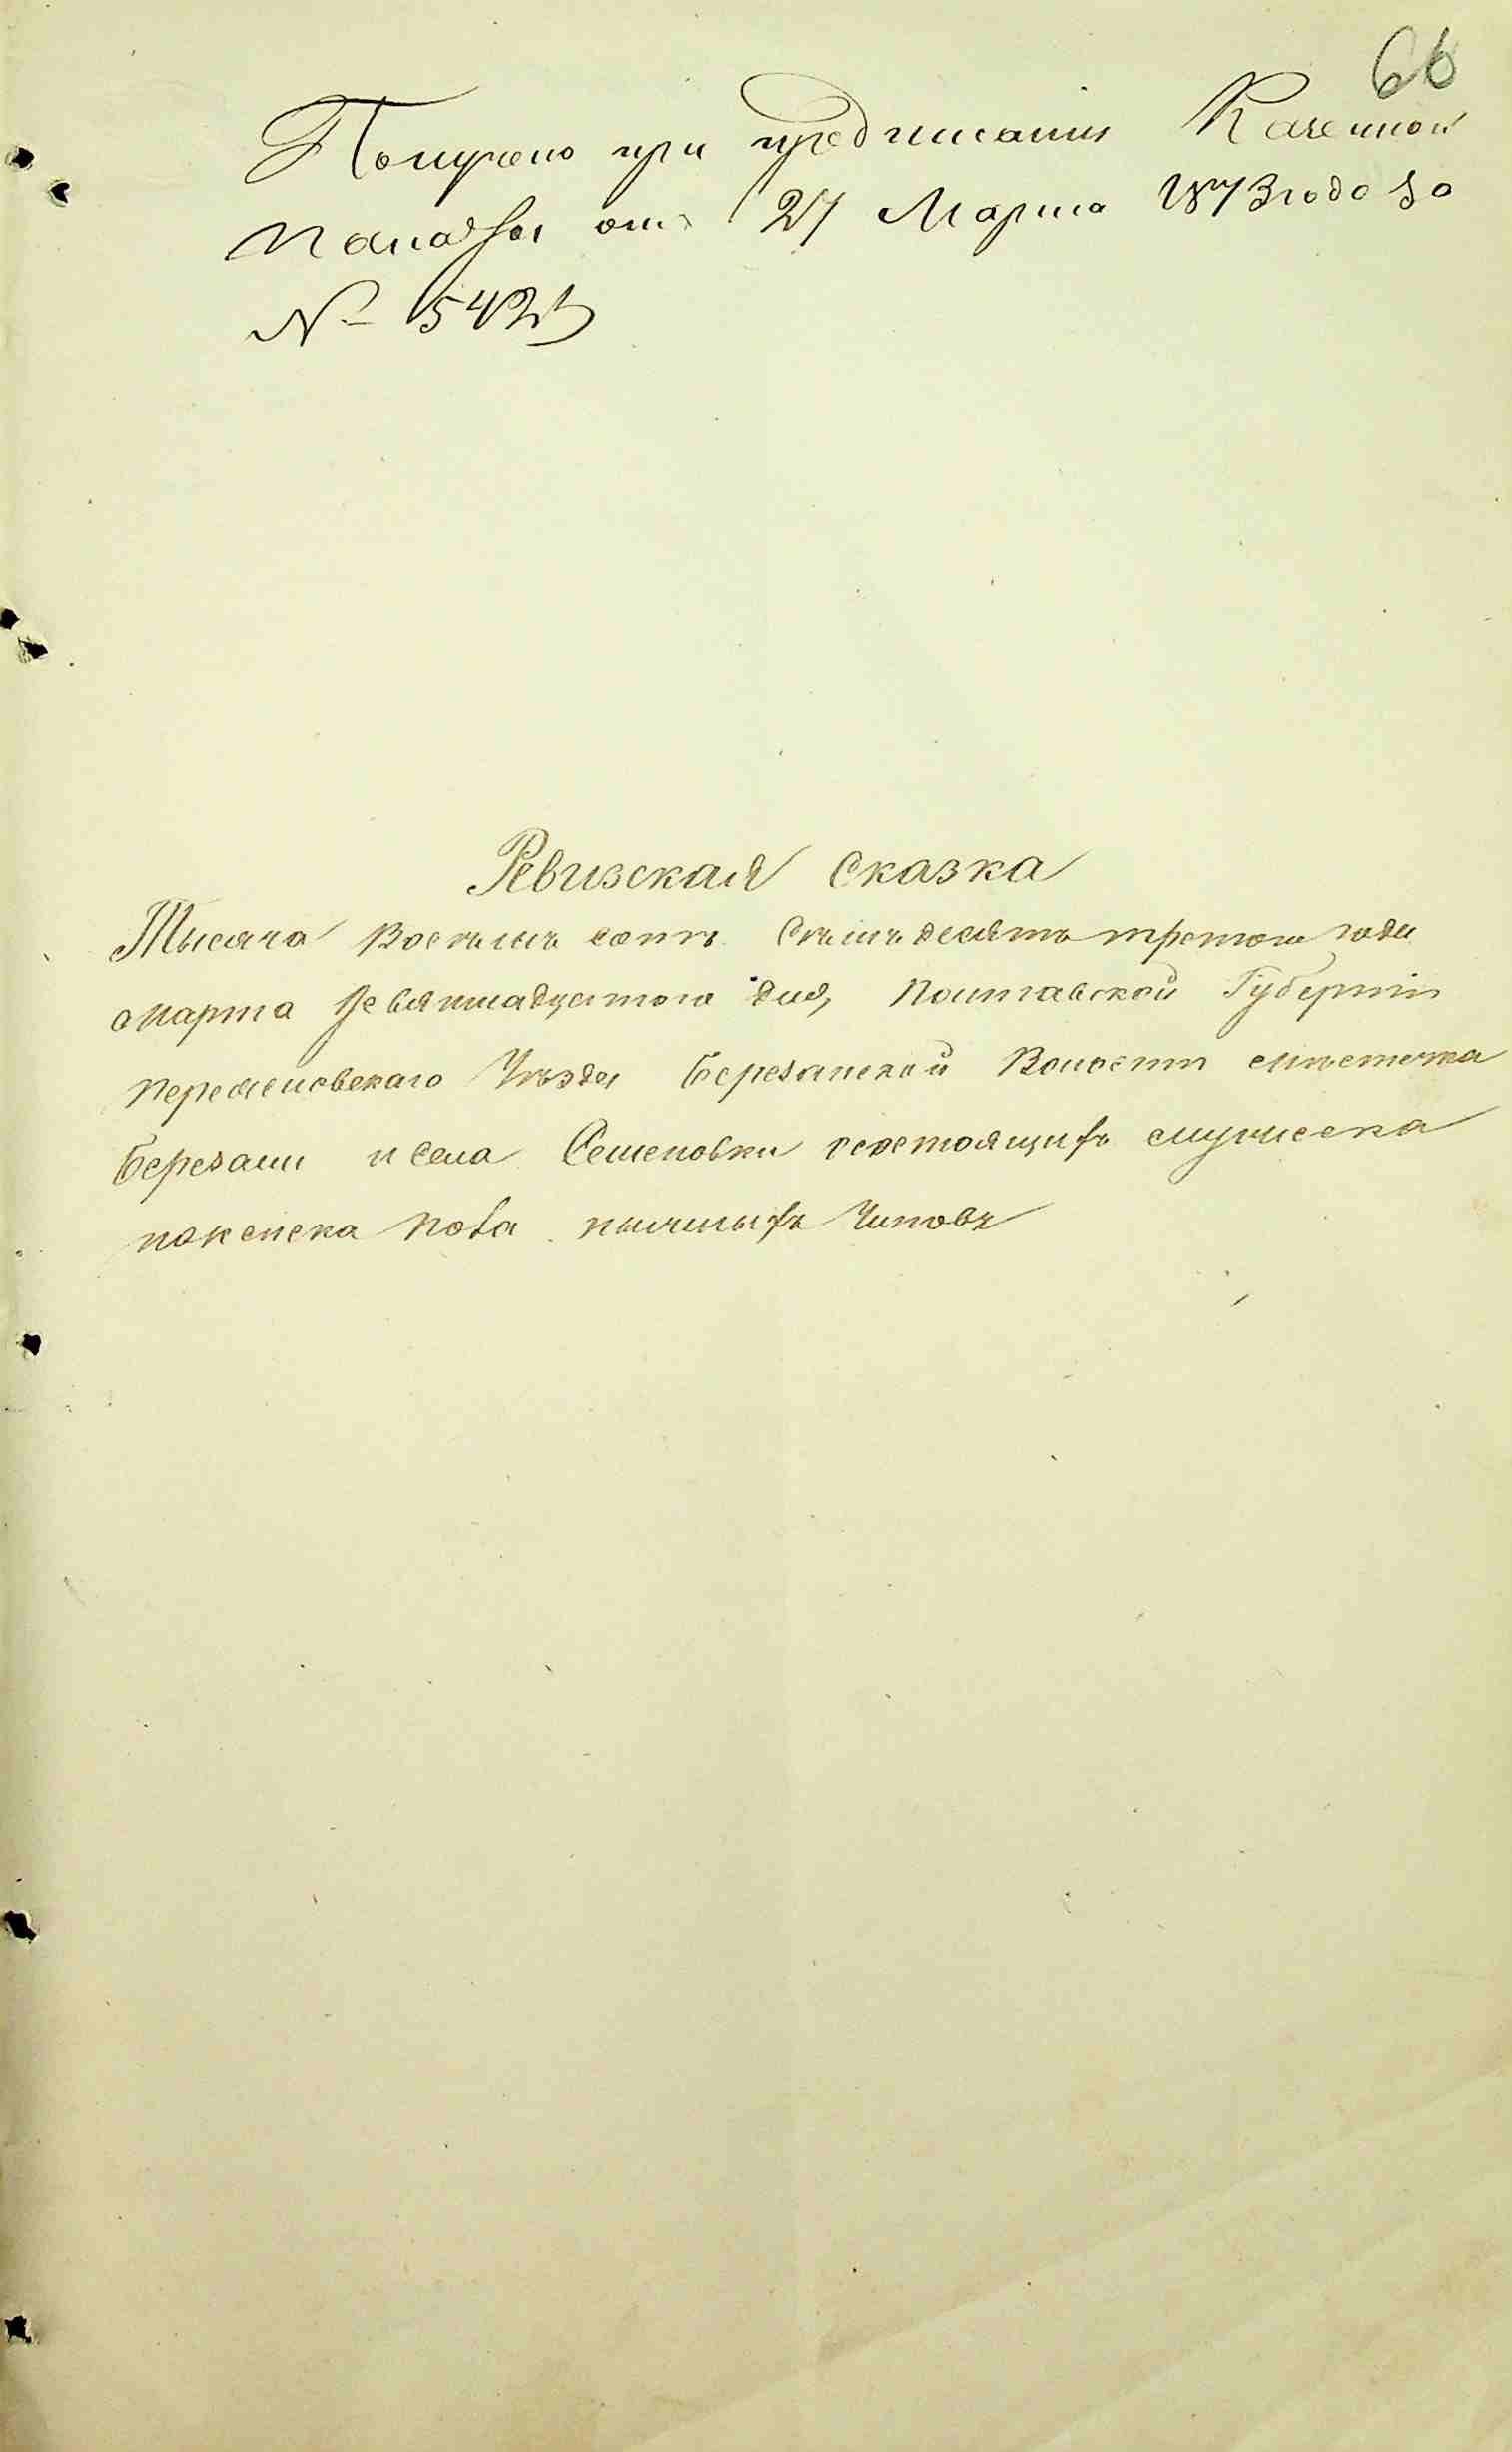 66
Получено при предписании Казенной
Палаты отъ 27 Марта 1873 года за
№ 5423
Ревизская Сказка
Тысяча Восемь сотъ Семъ десятъ третого года
Марта Девятнадцатого дня, Полтавской Губернии
Переяславскаго Уѣзда Березанской Волости смѣстечка
Березани и села Семеновки состоящихъ
пола нижныхъ Чиновъ